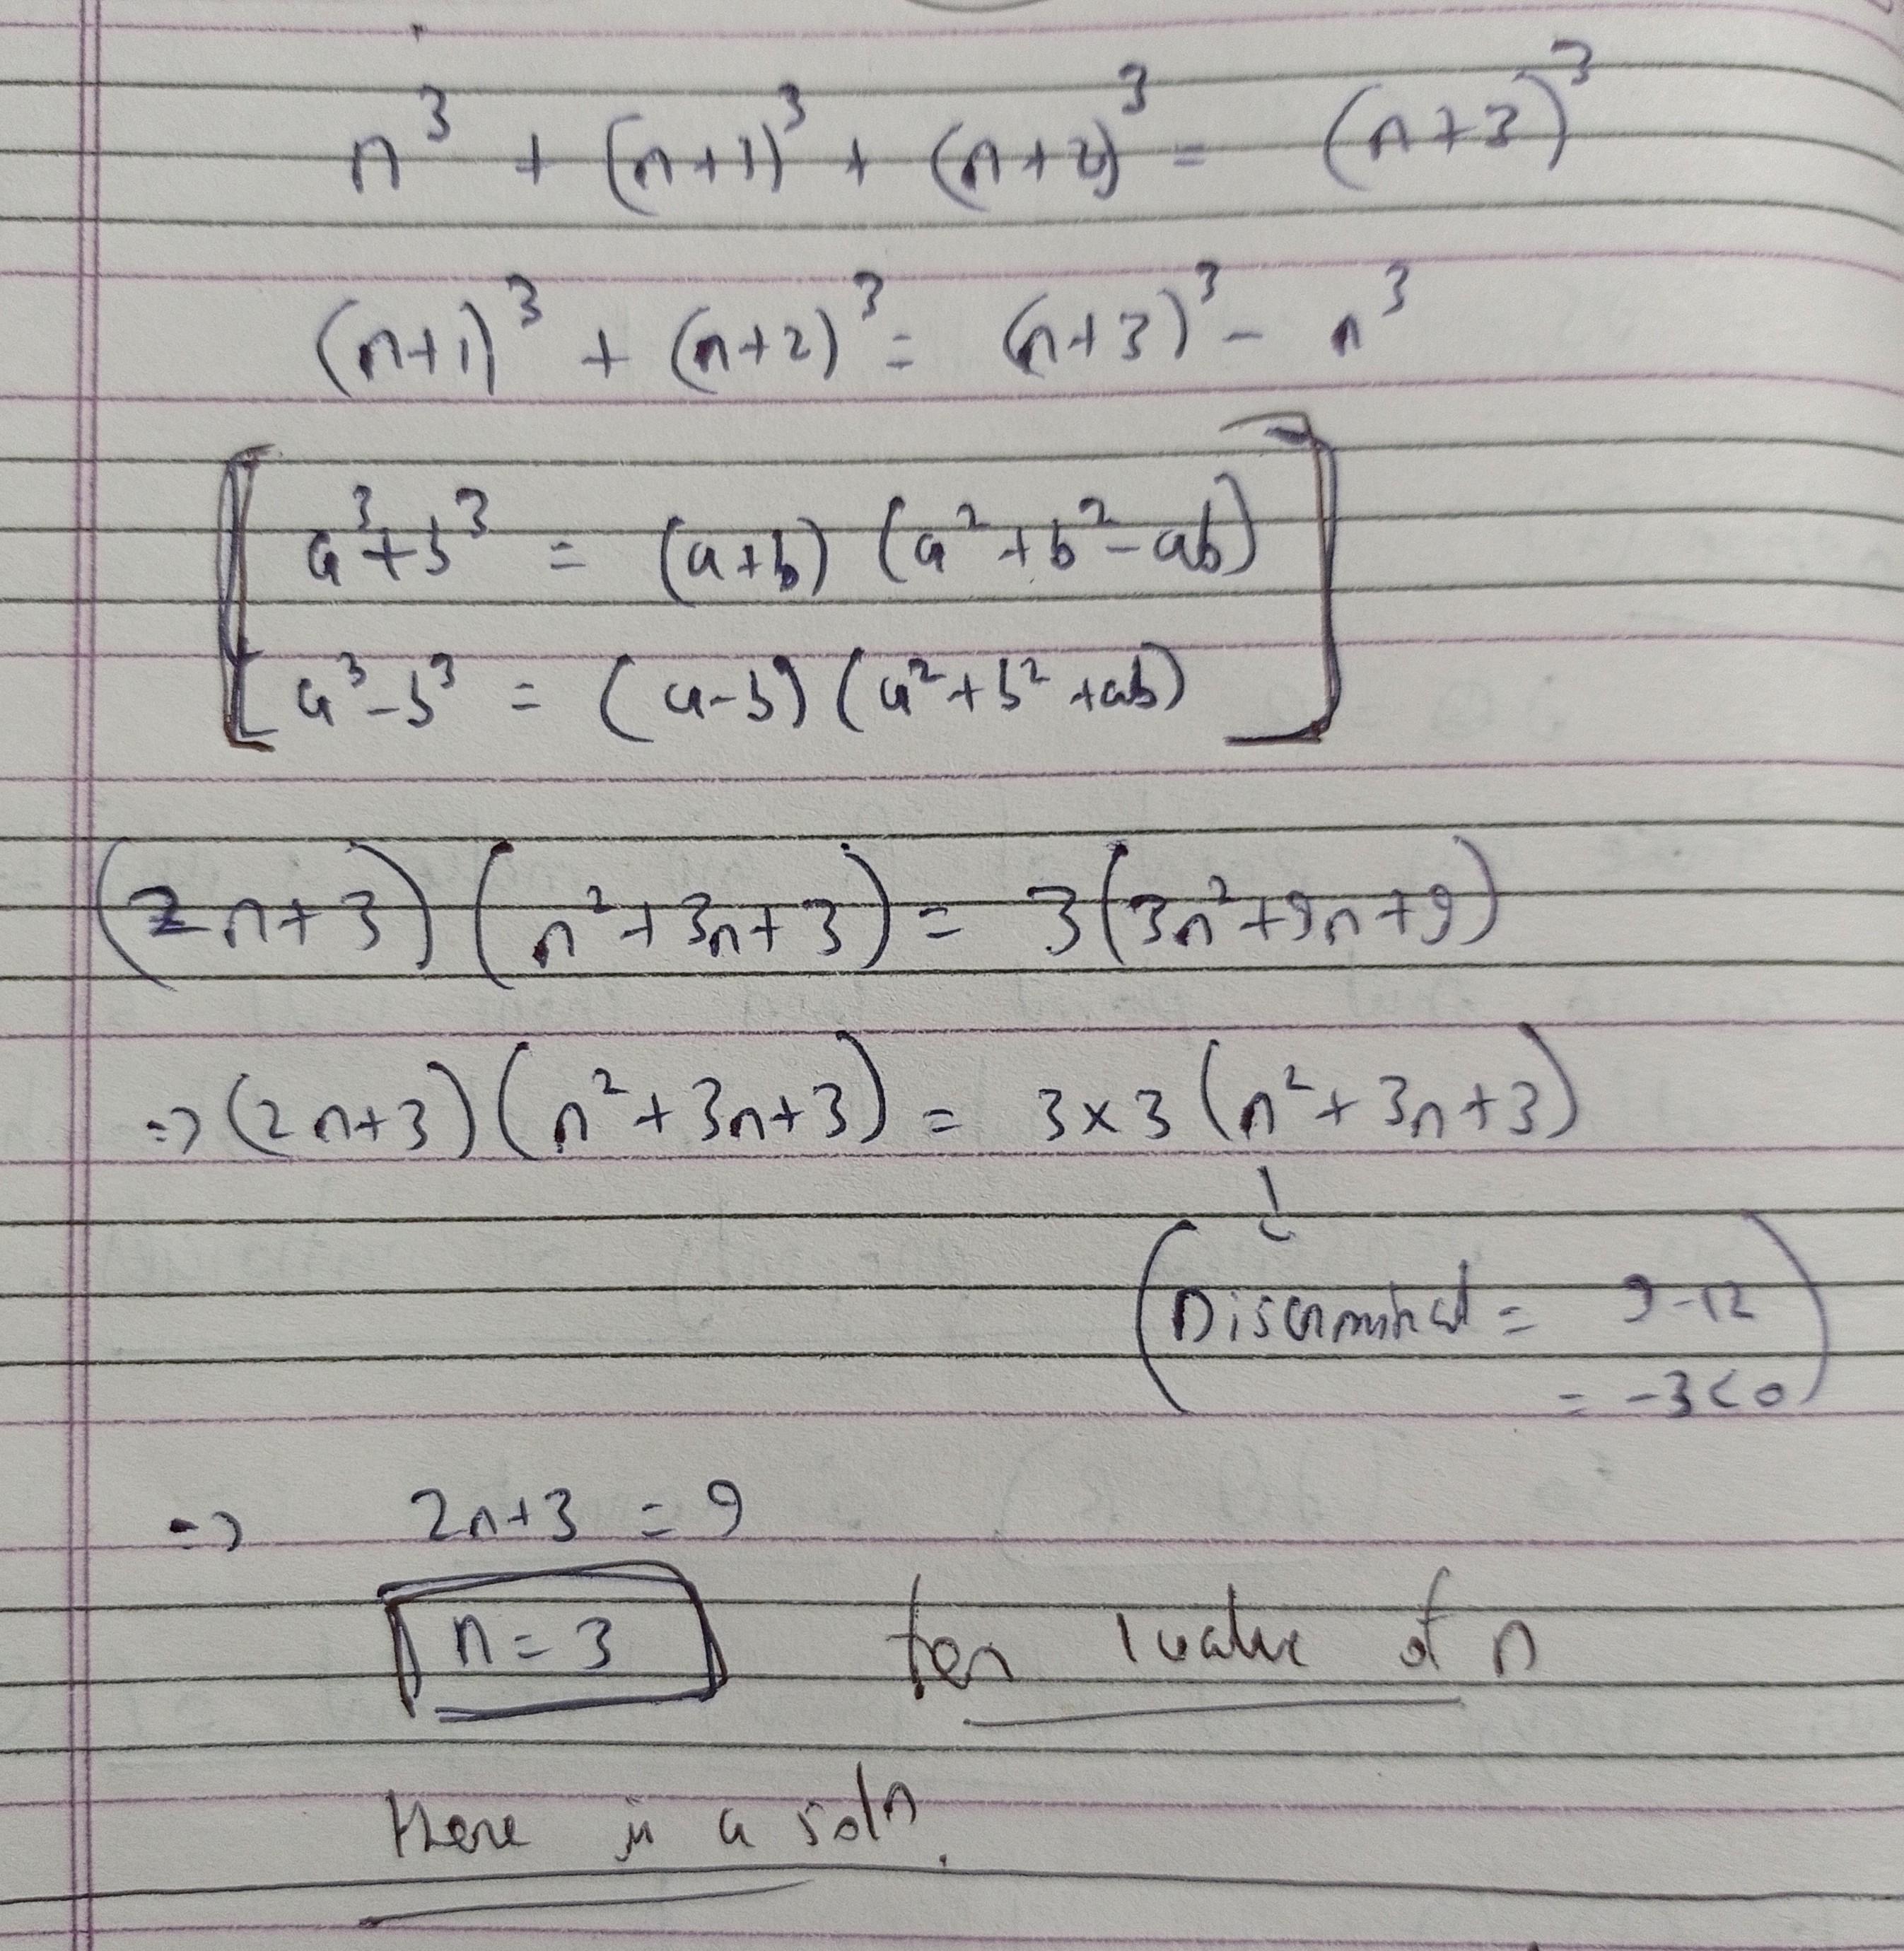 n³ + (n+1)³ + (n+2)³ = (n+3)³
(n+1)³ + (n+2)³ = (n+3)³ - n³
a³+b³ = (a+b) (a²+b²-ab)
a³-b³ = (a-b) (a²+b²+ab)
(2n+3) (n²+3n+3) = 3(3n²+9n+9)
=> (2n+3) (n²+3n+3) = 3×3 (n²+3n+3)
↓
(Discriminant = 9-12
= -3<0)
=> 2n+3 = 9
n=3 for 1 value of n
there is a soln.